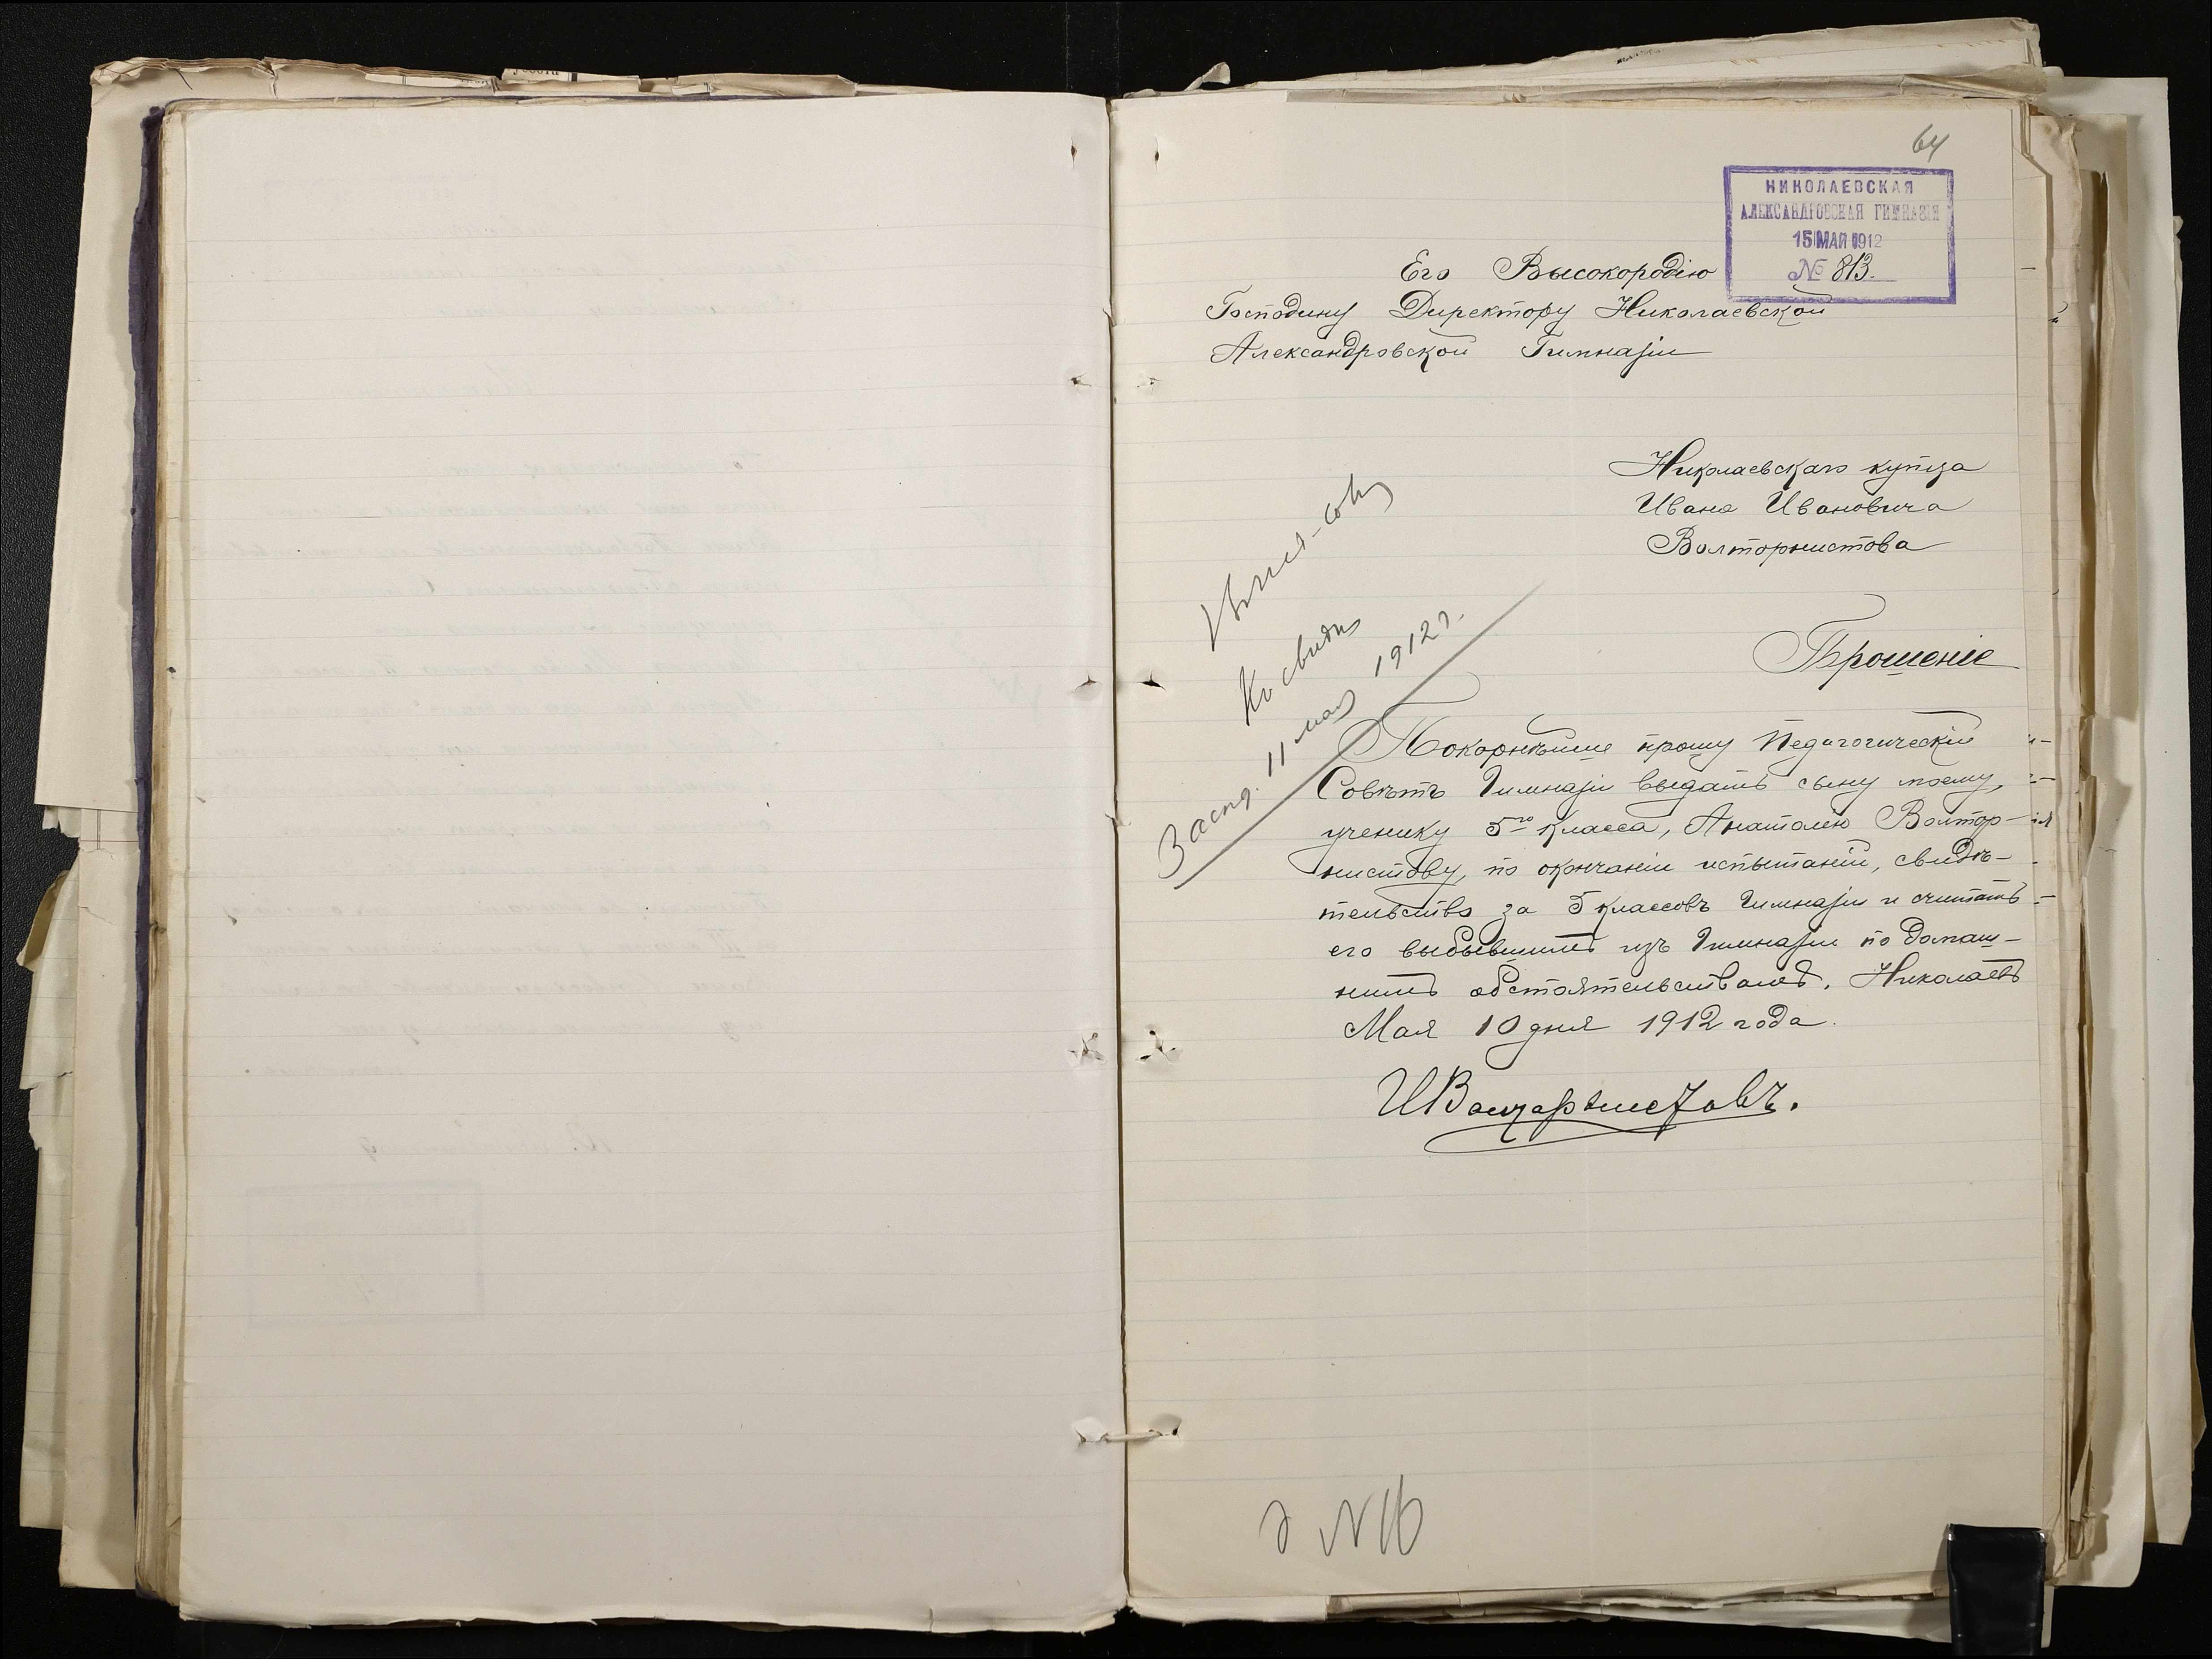 64
НИКОЛАЕВСКАЯ
АЛЕКСАНДРОВСКАЯ ГИМНАЗІЯ
15 МАЯ 1912
№ 813.
Его Высокородію
Господину Директору Николаевской
Александровской Гимназіи
Николаевскаго купца
Ивана Ивановича
Волторнистова
Прошеніе
Покорнѣйше прошу Педагогическій
Совѣтъ Гимназіи выдать сыну моему,
ученику 5го класса, Анатолію Волтор-
нистову, по окончаніи испытаній, свидѣ-
тельство за 5 классовъ Гимназіи и считать
его выбывшимъ изъ Гимназіи по домаш-
нимъ обстоятельствамъ. Николаевъ
Мая 10 дня 1912 года.
ИВолторнистовъ.
Засѣд. 11 мая 1912 г.
№ 16